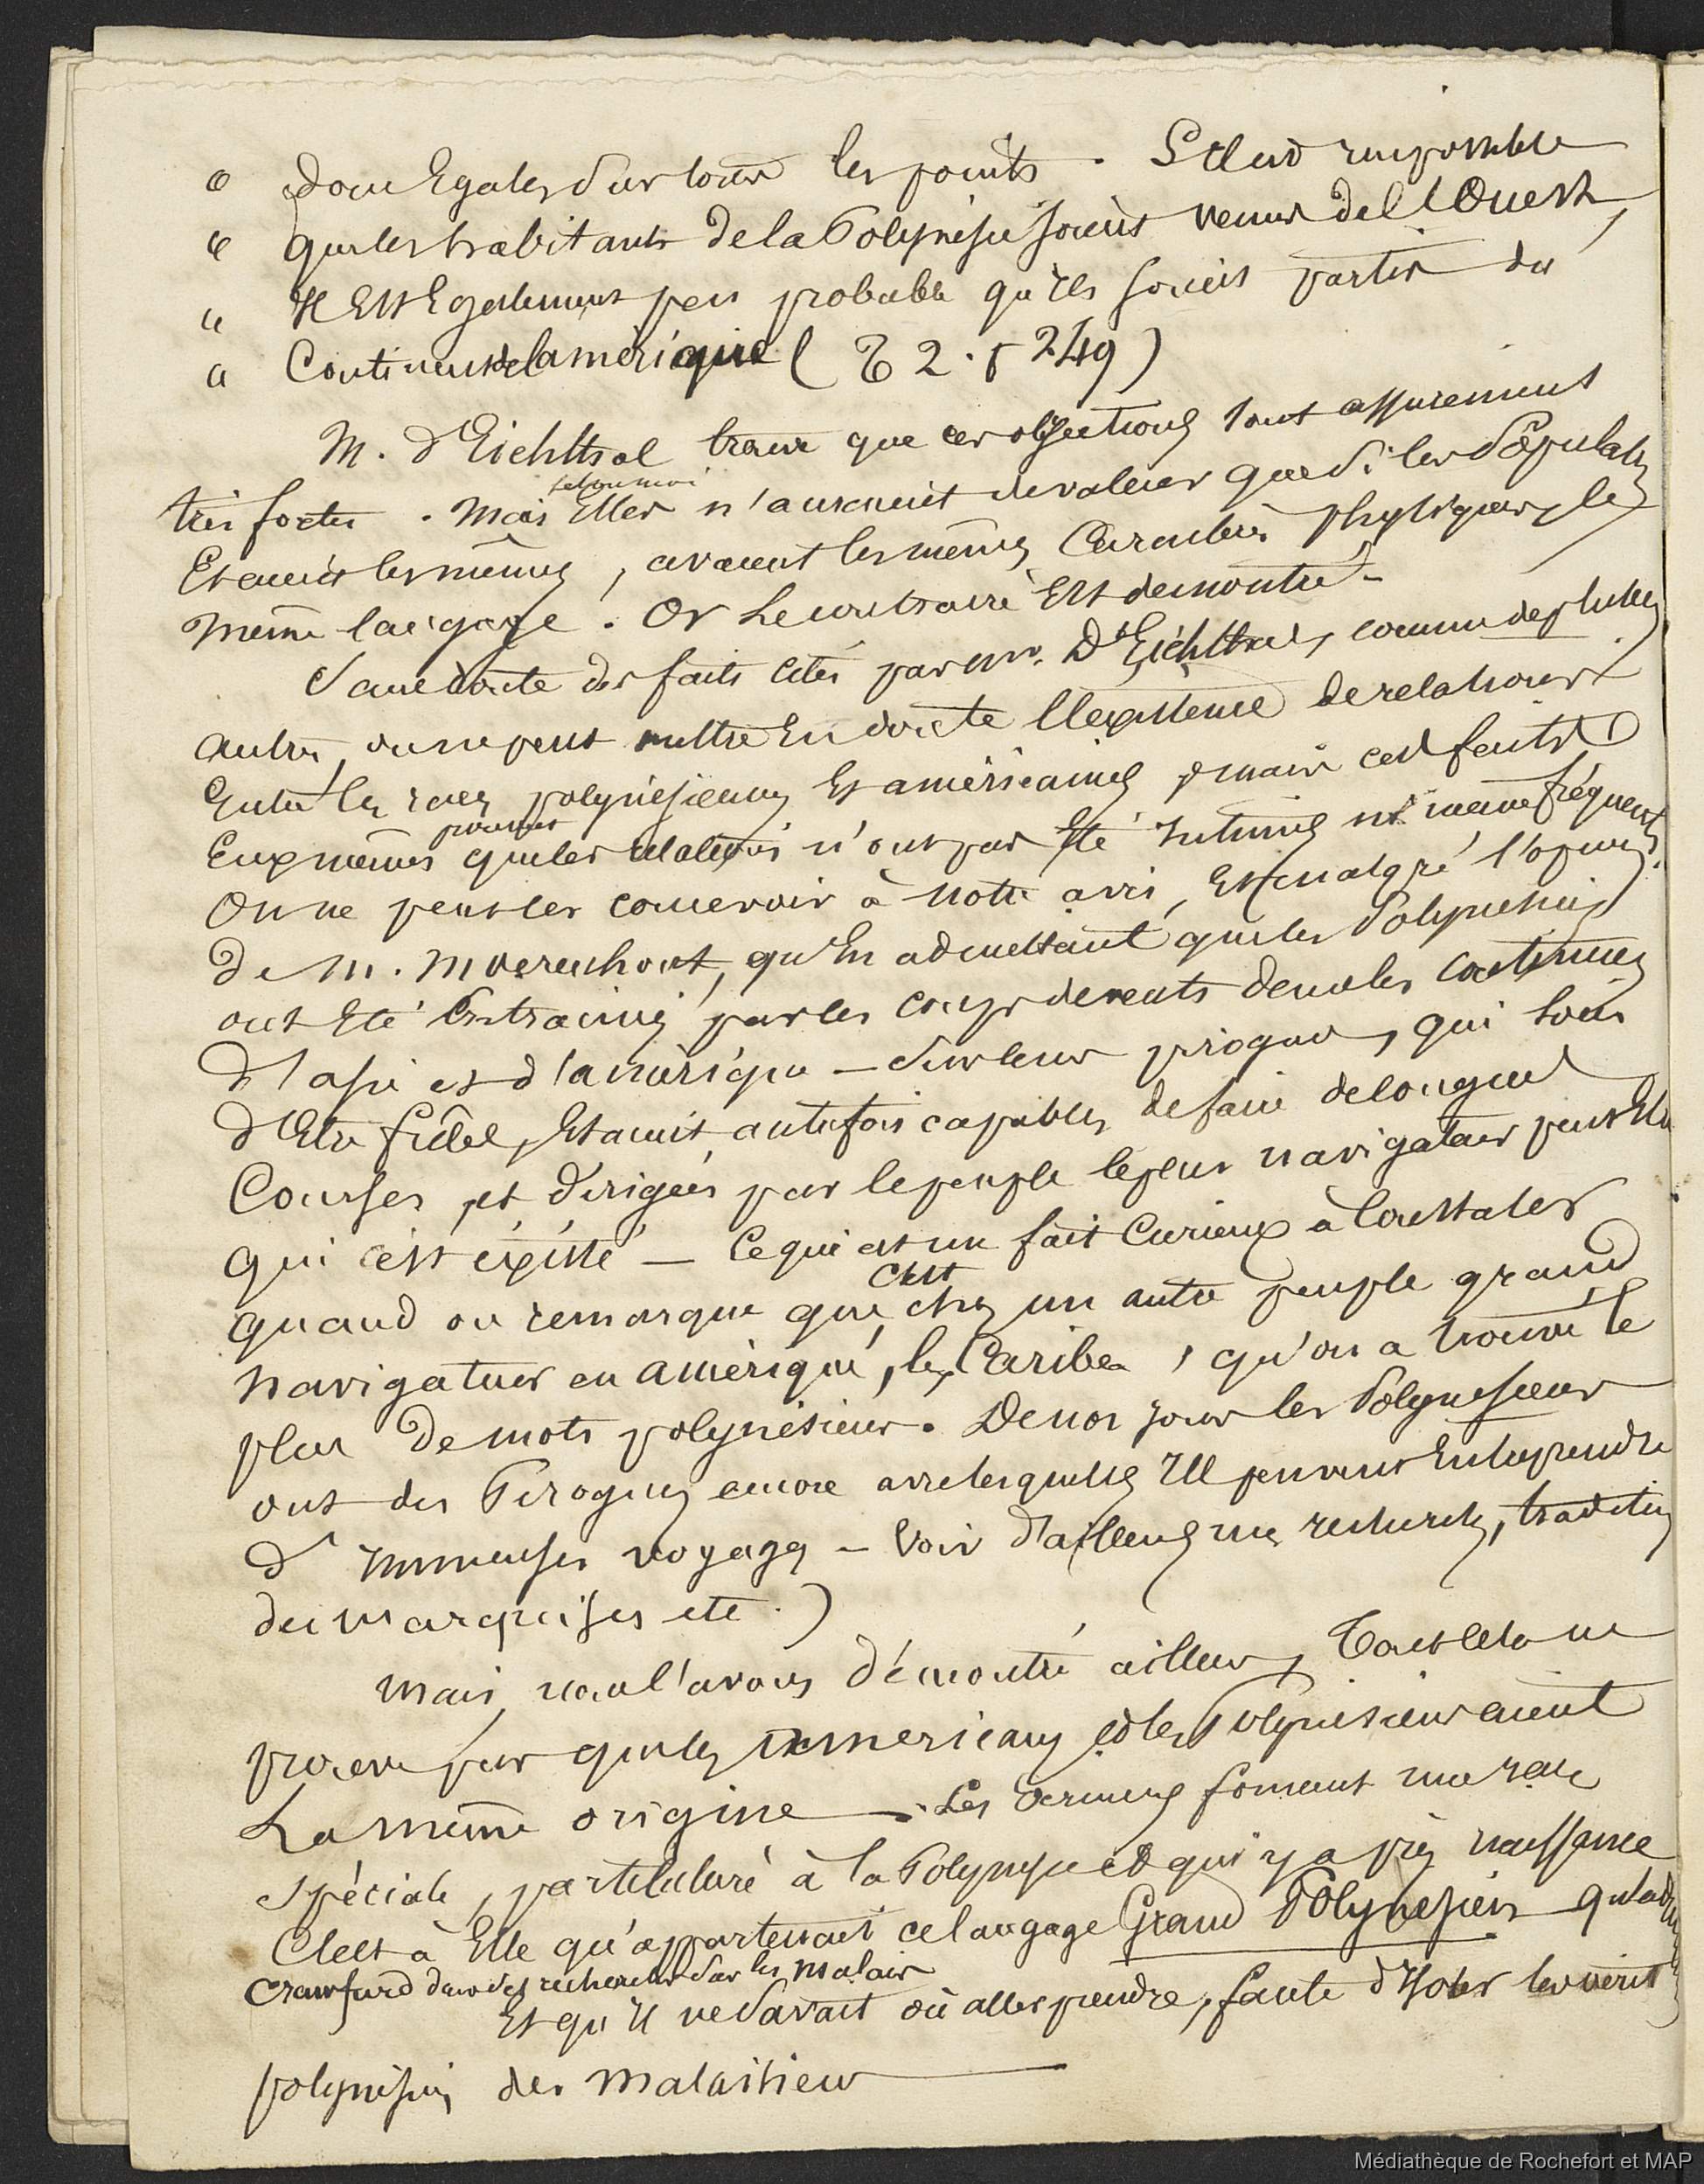 « donc Egales sur tous les points. S'il est impossible
« que les habitants de la Polynésie soient venus de l'Ouest,
« Il Est Egalement peu probable qu'ils soient partis du
« Continent de l'amérique ( T 2. p 249 )
M. d'Eichthal trouve que ces objections sont assurement
très fortes. Mais selon moi Elles n'auraient de valeur que si les Populations
Etaient les mêmes, avaient les mêmes Caractères physiques, le
même langage. Or Le contraire Est demontré.
Sans doute des faits cités par M. D'Eichthal, comme de plusieurs
autres, on ne peut mettre En doute l'existence de relations
Entre les races polynésiennes Et américaines, mais ces faits
Eux mêmes prouvent que les relations n'ont pas Eté intimes ni même fréquentes.
On ne peut les concevoir à notre avis, Et malgré l'opinion
de M. Moerenhout, qu'En admettant que les Polynésiens
ont Eté Entrainés par les coups de vents dans les continents
d'asie et d'amérique — sur leurs pirogues, qui loin
d'Etre frêles, Etaient autrefois capables de faire de longues
Courses, et dirigées par le peuple le plus navigateur peut Etre
qui ait existé — Ce qui est un fait Curieux à Constater
quand on remarque que c'Est chez un autre peuple grand
navigateur en amérique, les Caribes, qu'on a trouvé le
plus de mots polynésiens. De nos jours les Polynésiens
ont des Pirogues encore avec lesquelles Ils peuvent Entreprendre
d'Immenses voyages — Voir d'ailleurs mes recherches, traditions
des Marquises etc.)
Mais, nous l'avons démontré ailleurs, Tout cela ne
prouve pas que les Americains et les Polynésiens aient
La même origine. Les derniers forment une race
spéciale, particulière à la Polynésie et qui y a pris naissance
C'est à Elle qu'appartenait ce langage Grand Polynésien qu'admet
Crawfurd dans ses recherches sur les Malais
Et qu'Il ne savait où aller prendre, faute d'Isoler les
polynésiens des Malaisiens